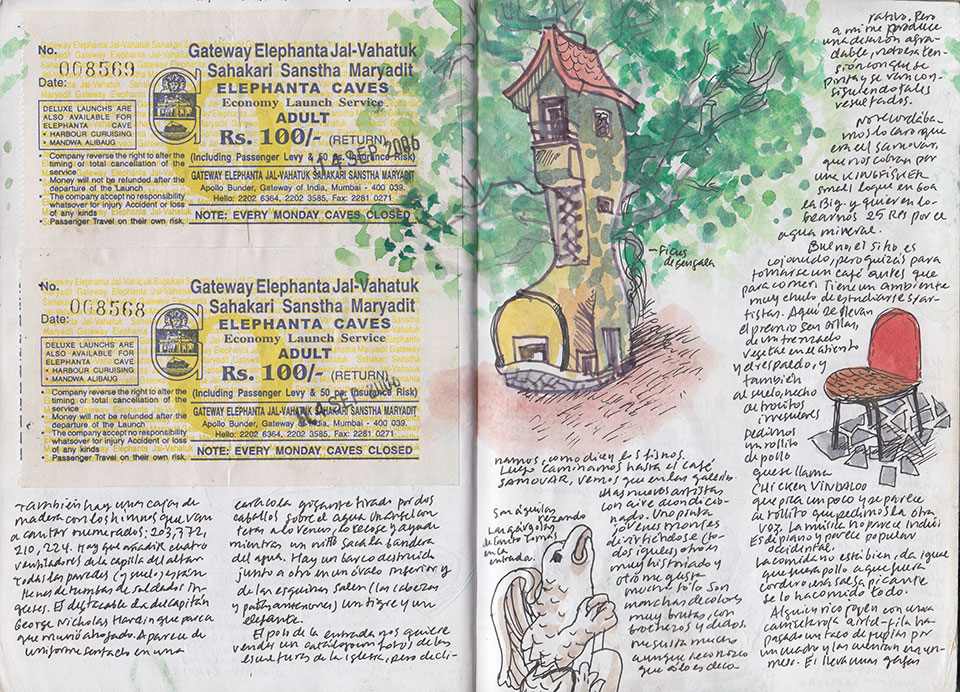 No.
068569
Date:
DELUXE LAUNCHS ARE
ALSO AVAILABLE FOR
ELEPHANTA CAVE
• HARBOUR CURUISING
• MANDWA ALIBAUG
• Company reverse the right to after the
timing or total cancellation of the
service
• Money will not be refunded after the
departure of the Launch
• The company accept no responsibility
whatsover for injury Accident or loss
of any kinds
• Passenger Travel on their own risk.
Gateway Elephanta Jal-Vahatuk
Sahakari Sanstha Maryadit
ELEPHANTA CAVES
Economy Launch Service
ADULT
Rs. 100/- (RETURN)
14 SEP 2006
(Including Passenger Levy & 50 ps. Insurance Risk)
GATEWAY ELEPHANTA JAL-VAHATUK SAHAKARI SANSTHA MARYADIT
Apollo Bunder, Gateway of India, Mumbai - 400 039.
Hello: 2202 6364, 2202 3585, Fax: 2281 0271.
NOTE: EVERY MONDAY CAVES CLOSED
No.
068568
Date:
DELUXE LAUNCHS ARE
ALSO AVAILABLE FOR
ELEPHANTA CAVE
• HARBOUR CURUISING
• MANDWA ALIBAUG
• Company reverse the right to after the
timing or total cancellation of the
service
• Money will not be refunded after the
departure of the Launch
• The company accept no responsibility
whatsover for injury Accident or loss
of any kinds
• Passenger Travel on their own risk.
Gateway Elephanta Jal-Vahatuk
Sahakari Sanstha Maryadit
ELEPHANTA CAVES
Economy Launch Service
ADULT
Rs. 100/- (RETURN)
14 SEP 2006
(Including Passenger Levy & 50 ps. Insurance Risk)
GATEWAY ELEPHANTA JAL-VAHATUK SAHAKARI SANSTHA MARYADIT
Apollo Bunder, Gateway of India, Mumbai - 400 039.
Hello: 2202 6364, 2202 3585, Fax: 2281 0271
NOTE: EVERY MONDAY CAVES CLOSED
También hay unas cajas de
madera con los himnos que van
a cantar numerados: 203, 772,
210, 224. Hay que añadir cuatro
ventiladores de la capilla del altar
Todas las paredes (y suelo) están
llenas de tumbas de soldados in-
gleses. El destacable es la del capitán
George Nicholas Hardinge que parece
que murió ahogado. Aparece de
uniforme sentado en una
caracola gigante tirado por dos
caballos sobre el agua. Un angel con
teras a lo veneno, lo recose y ayuda
mientras un niño saca la bandera
del agua. Hay un barco destruido
junto a otro en un óvalo inferior y
de las esquinas salen (las cabezas
y patas anteriores) un tigre y un
elefante.
El pobo de la entrada nos quiere
vender un catálogo (con fotos) de las
esculturas de la iglesia, pero decli-
namos, como dicen los finos.
Luego caminamos hasta el café
SAMOVAR, vemos que en las galerías
hay nuevos artistas
con aire acondicio-
nado. Uno pinta
jóvenes monjes
divirtiéndose (to-
dos iguales) otro es
muy historiado y
otro me gusta
mucho. Solo son
manchas de colores
muy brutas con
brochazos y dedos.
me gusta mucho
aunque reconozco
que sólo es deco-
Son águilas
rezando
Las gárgolas
de Santo Tomás
en la
entrada.
- Ficus
de bengala
rativo. Pero
a mi me produce
una desazón agra-
dable, notar esa ten-
sión con que se
pinta y se van con-
siguiendo tales
resultados.
No recordába-
mos lo caro que
era el samovar,
que nos cobran por
una KINGFISHER
small lo que en Goa
la Big. y quieren co-
brarnos 25 RPs por el
agua mineral.
Bueno, el sitio es
cojonudo, pero quizás para
tomarse un café antes que
para comer. Tiene un ambiente
muy chulo de estudiantes y ar-
tistas. Aquí se llevan
el premio sus sillas,
de un trenzado
vegetal en el asiento
y el respaldo, y
también
al suelo, hecho
de trocitos
irregulares
Pedimos
un rollito
de pollo
que se llama
CHICKEN VINDALOO
que pica un poco y se parece
al rollito que pedimos la otra
voz. La música no parece indú
Es de piano y parece popular
occidental.
La comida no está bien, da igual
que fuera pollo a que fuera
cordero, esa salsa picante
se lo ha comido todo.
Algún rico joven con una
camiseta a airtel-fila ha
pasado un taco de rupias por
un cuadro y las cuentan en una
mesa. El lleva unas gafas